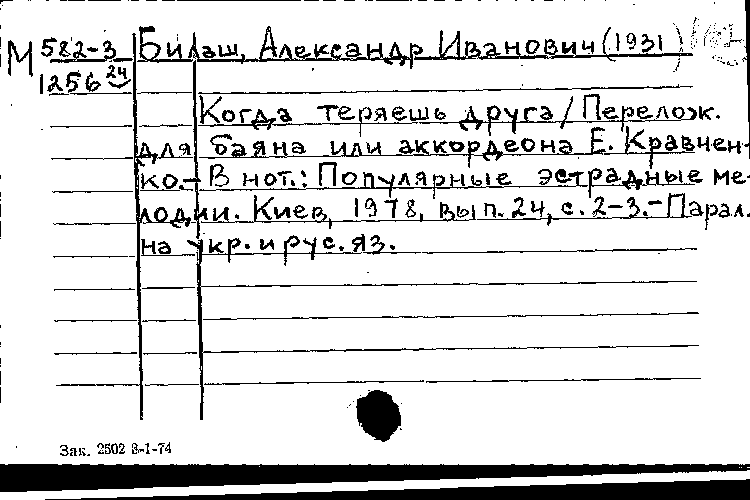 М 582-3 Билаш, Александр Иванович (1931)
1256 24
Когда теряешь друга/Перелож.
для баяна или аккордеона Е. Кравчен-
ко.- В нот.: Популярные эстрадные ме-
лодии. Киев, 1978, вып. 24, с. 2-3.- Парал.
на укр. и рус. яз.
Зак. 2502 8-1-74